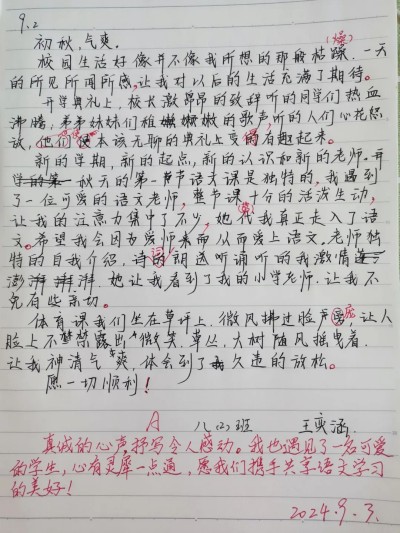 9.2
初秋,气爽。
校园生活好像并不像我所想的那般枯躁,一天 (燥)
的所见所闻所感,让我对以后的生活充满了期待。
开学典礼上,校长激昂昂的致辞听的同学们热血
沸腾,弟弟妹妹们稚嫩嫩的歌声听的人们心花怒
放,他们使本该无聊的典礼上变的有趣起来。
新的学期,新的起点,新的认识和新的老师。开
学 秋天的第一节语文课是独特的,我遇到
了一位可爱的语文老师,整节课十分的活泼生动,
让我的注意力集中了不少,她代我真正走入了语
文。希望我会因为爱师 而从而爱上语文。老师独
特的自我介绍,诗词的朗送听诵听的我激情
澎湃,她让我看到了我的小学老师,让我不
免有些亲切。
体育课我们坐在草坪上,微风拂过脸庞,让人
脸上不禁露出微笑,草丛,大树随风摇曳着,
让我神清气爽,体会到了久违的放松。
愿一切顺利!
A 八(2)班 王 涵
真诚的心声抒写令人感动。我也遇见了一名可爱
的学生,心有灵犀一点通,愿我们携手共享语文学习
的美好!
2024.9.3.